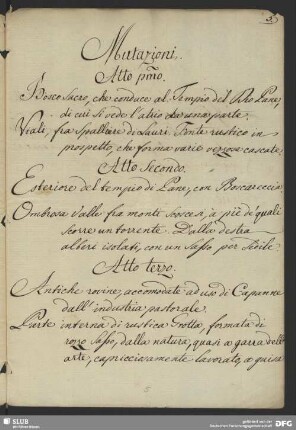 3.
Mutazioni.
Atto pmo.
Bosco Sacro, che conduce al Tempio del Dio Pane,
di cui si vede l'atrio da una parte.
Viali, fra Spalliere di Lauri. Fonte rustico in
prospetto, che forma varie cascate.
Atto Secondo.
Esteriore del tempio di Pane, con Boscareccio
Ombrosa Valle fra monti scoscesi, a piè de' quali
scorre un torrente. Dalla destra
alberi isolati, con un Sasso per Sedile.
Atto terzo.
Antiche rovine, accomodate ad uso di Capanne
dall'industria pastorale.
Parte interna di rustica Grotta, formata di
rozzo Sasso, dalla natura, quasi a gara dell'
arte, capricciosamente lavorato, a guisa
SLUB
DFG